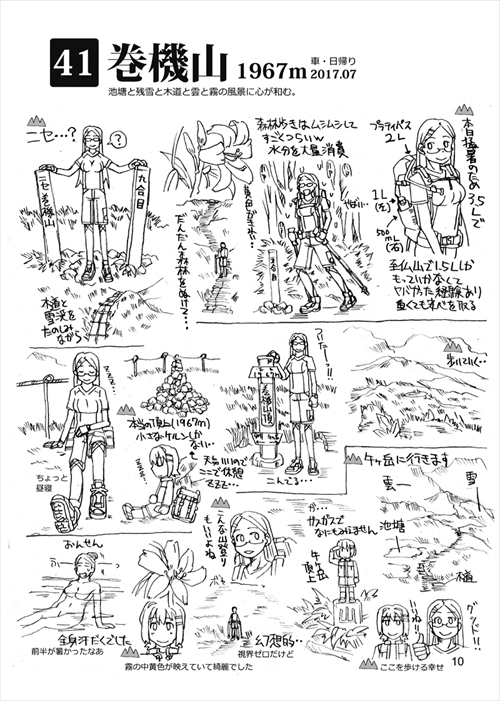 41 巻機山 1967m 車・日帰り 2017.07
池塘と残雪と木道と雲と霧の風景に心が和む。
本日極暑のため3.5Lで
プラティパス
2L
1L
(左)
500mL
(右)
至仏山で1.5Lしか
もっていかなくて
ヤバかった経験あり
重くても水べを取る
森林歩きはムシムシして
すごくつらいw
水分を大量消費
やばい…
五合目
だんだん森林をぬけて…
ニセ…?
?
九合目
ニセ巻機山
木道と
雪渓を
たのしみ
ながら
歩いていく…
ついたー!!
巻機山頂
こんでる…
本当の頂上(1967m)
小さなケルンしか
ない…
天気いいので
ここで休憩
ZZZ…
ZZZ…
ちょっと
昼寝
牛ヶ岳に行きます
雲
雪
池塘
木道
が…
ガスガスで
なにもみえません
牛ヶ岳
頂上
山
こんな山登り
もいいよね
幻想的…
視界ゼロだけど
霧の中黄色が映えていて綺麗でした
おんせん
ふー
全身汗だくでした
前半が暑かったなあ
いいね!!
グッド!!
ここを歩ける幸せ
10